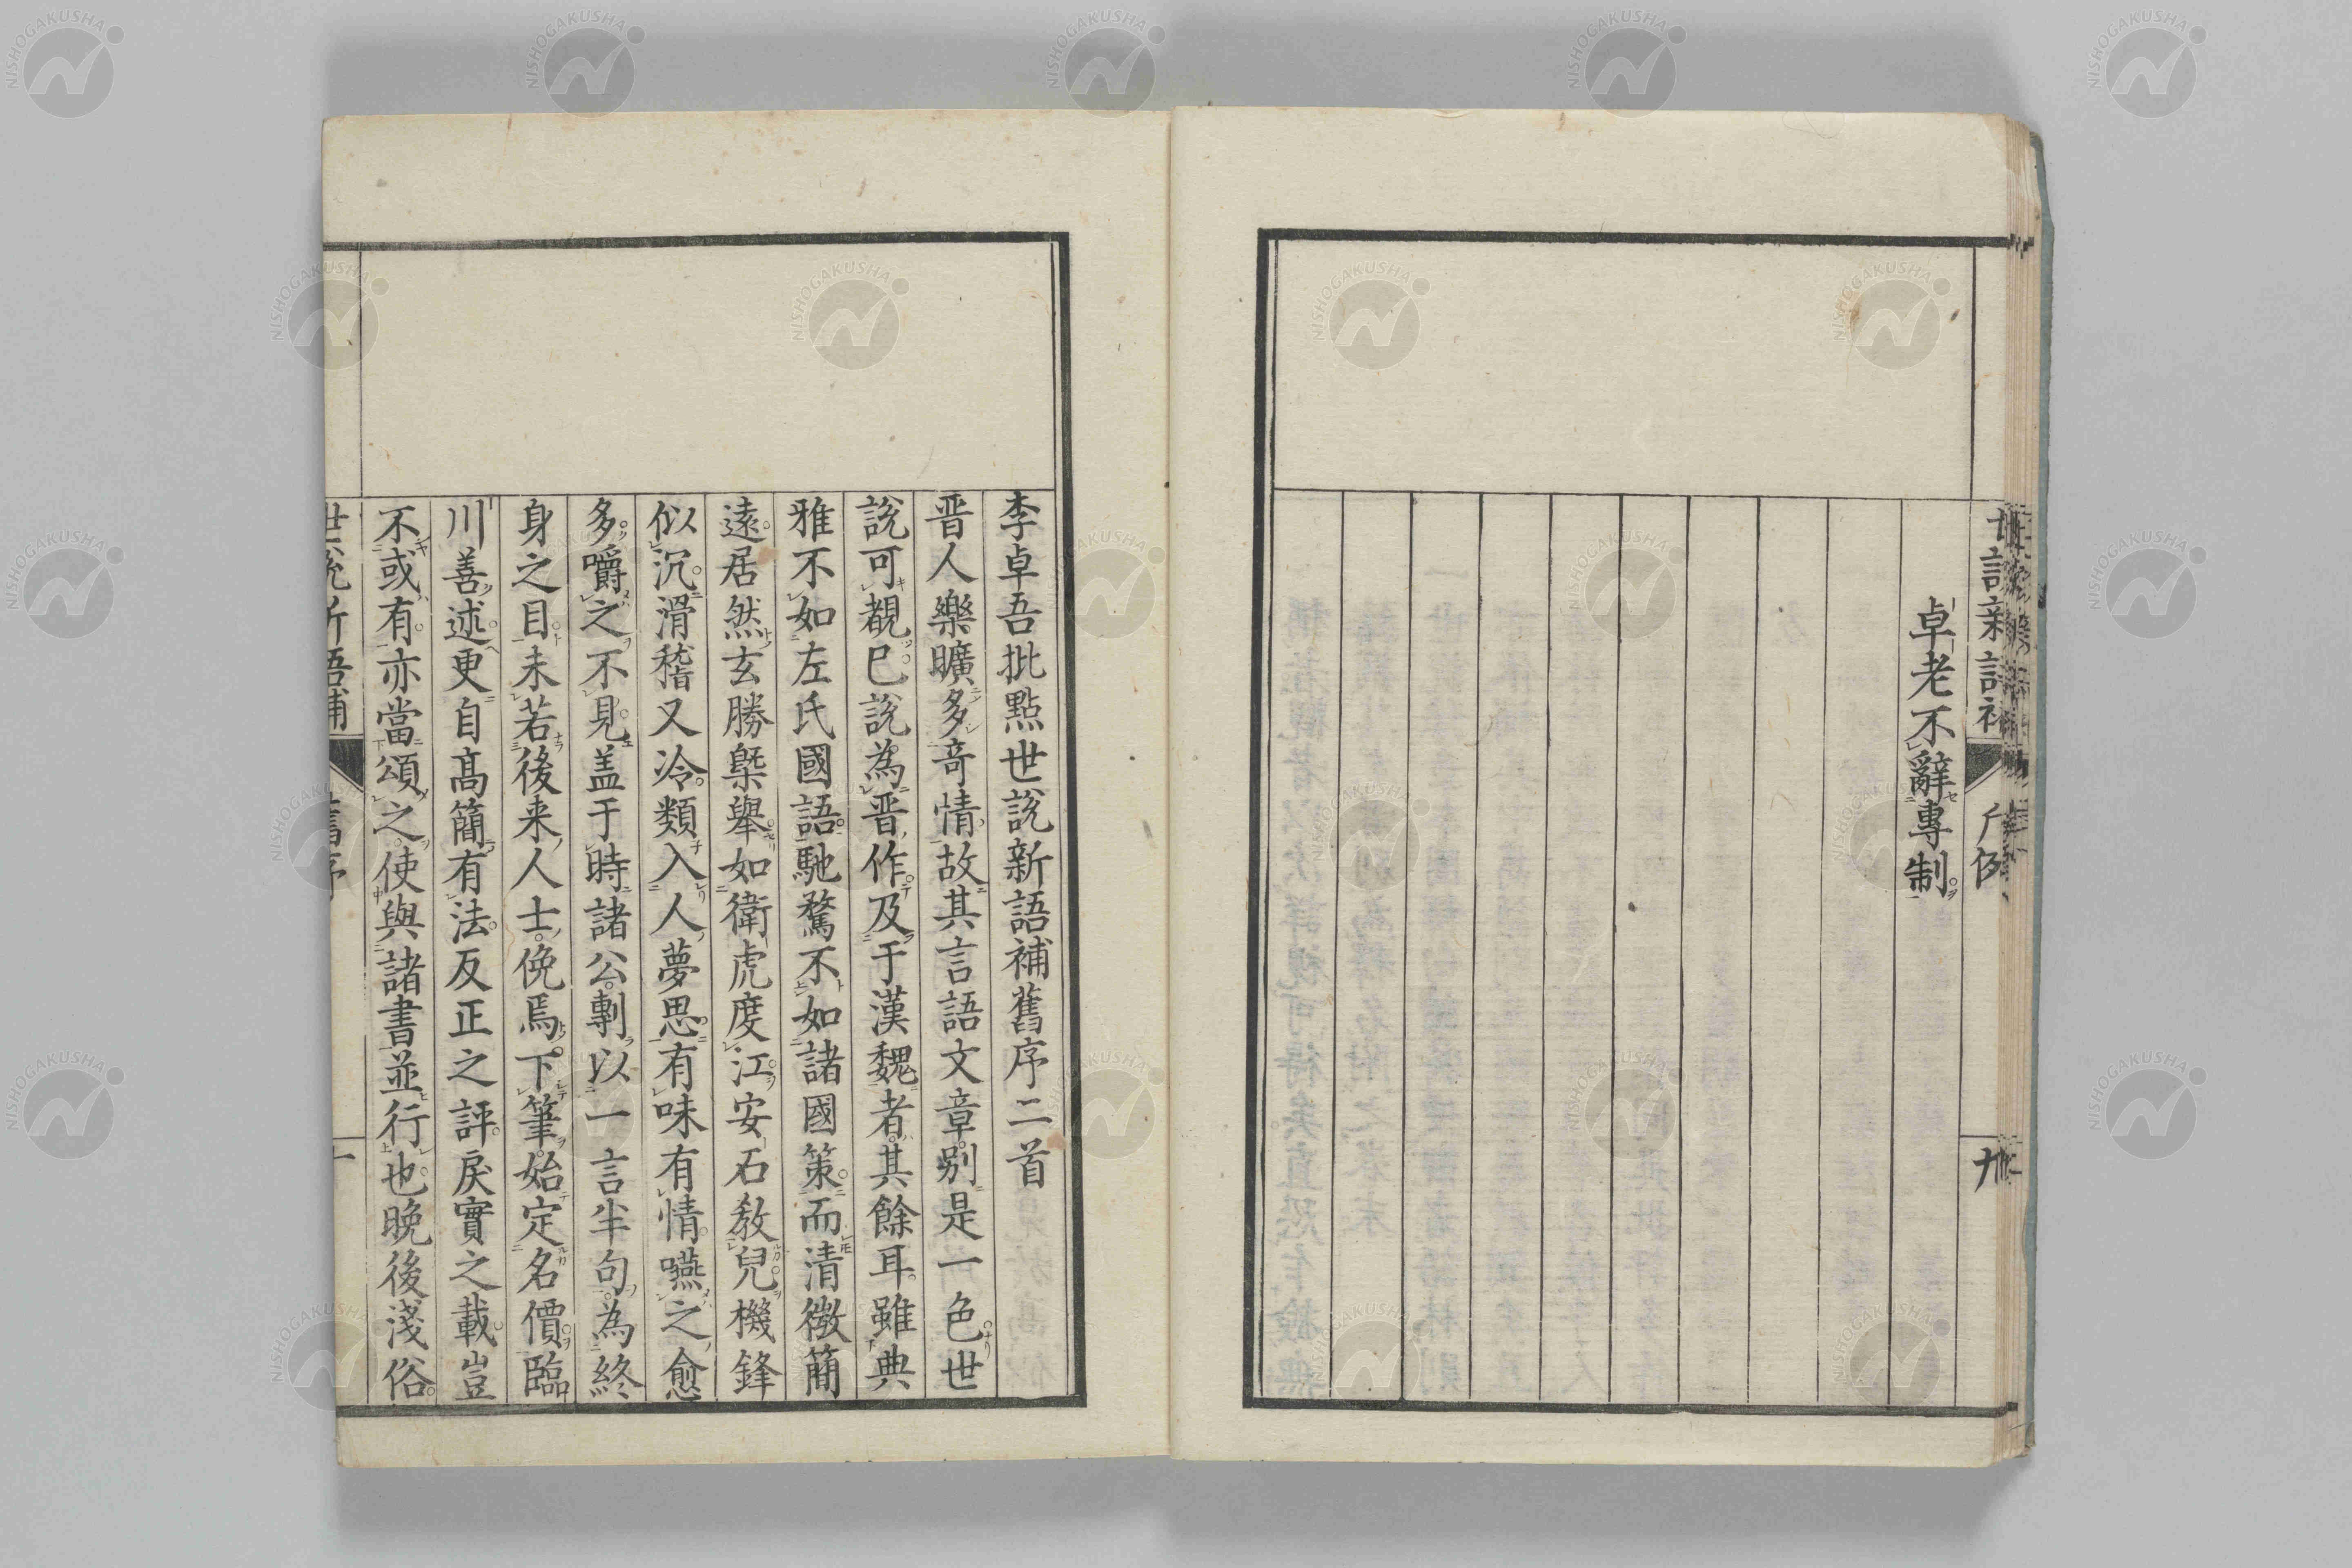 卓老不辭專制
李卓吾批點世說新語補舊序二首
晋人樂曠多竒情故其言語文章别是一色世
說可覩已說為晋作及于漢魏者其餘耳雖典
雅不如左氏國語馳騖不如諸國策而清微簡
遠居然玄勝槩舉如衛虎度江安石教兒機鋒
似沉滑稽又冷類入人夢思有味有情嚥之愈
多嚼之不見盖于時諸公剸以一言半句為終
身之目未若後来人士俛焉下筆始定名價臨
川善述更自髙簡有法反正之評戾實之載豈
不或有亦當頌之使與諸書並行也晚後淺俗
NISHOGAKUSHA